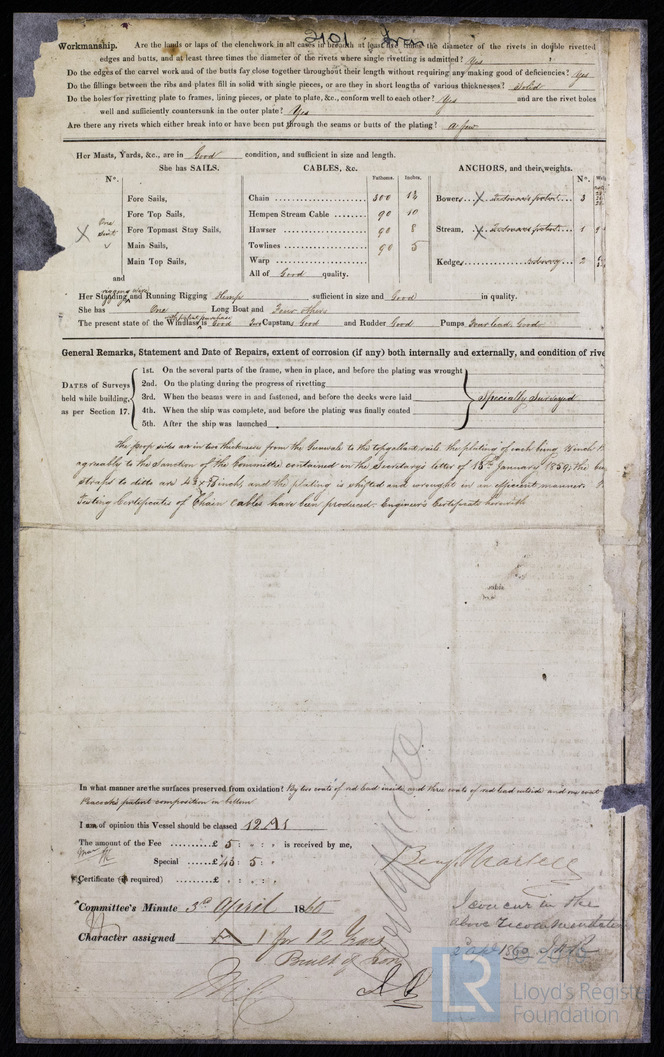 3101 Iron
Workmanship. Are the lands or laps of the clenchwork in all cases in breadth at least five times the diameter of the rivets in double rivetted
edges and butts, and at least three times the diameter of the rivets where single rivetting is admitted? Yes
Do the edges of the carvel work and of the butts fay close together throughout their length without requiring any making good of deficiencies? Yes
Do the fillings between the ribs and plates fill in solid with single pieces, or are they in short lengths of various thicknesses? Solid
Do the holes for rivetting plate to frames, lining pieces, or plate to plate, &c., conform well to each other? Yes and are the rivet holes
well and sufficiently countersunk in the outer plate? Yes
Are there any rivets which either break into or have been put through the seams or butts of the plating? a few
Her Masts, Yards, &c., are in Good condition, and sufficient in size and length.
She has SAILS. CABLES, &c. ANCHORS, and their weights.
Nº. Fathoms. Inches. Nº.
Fore Sails, Chain 300 Bowers 3
Fore Top Sails, Hempen Stream Cable 90 10
One Suit Fore Topmast Stay Sails, Hawser 90 8 Stream, 1
Main Sails, Towlines 90 5
Main Top Sails, Warp Kedge 2
and All of Good quality.
rigging wire
Her Standing and Running Rigging Hemp sufficient in size and Good in quality.
She has One Long Boat and Four others
The present state of the Windlass is Good Two Capstan, Good and Rudder Good Pumps Four lead, Good
General Remarks, Statement and Date of Repairs, extent of corrosion (if any) both internally and externally, and condition of rive
1st. On the several parts of the frame, when in place, and before the plating was wrought
DATES of Surveys 2nd. On the plating during the progress of rivetting
held while building, 3rd. When the beams were in and fastened, and before the decks were laid Specially Surveyed
as per Section 17. 4th. When the ship was complete, and before the plating was finally coated
5th. After the ship was launched
The poop sides are in two thicknesses from the Gunwale to the topgallant rails the plating of each being
agreeably to the Sanction of the Committee contained in the Secretary's letter of 15th January 1859, the
straps to ditto are inch, and the plating is shifted and wrought in an efficient manner.
Testing Certificates of Chain Cables have been produced. Engineer's Certificate herewith
In what manner are the surfaces preserved from oxidation? By two coats of red lead inside, and three coats of red lead outside and one coat
Peacock's patent composition on bottom
I am of opinion this Vessel should be classed 12 A 1
The amount of the Fee £ 5 : : is received by me,
Special £ 45 : 5 :
Certificate (if required) £ : :
Benj. Martell
Committee's Minute 3rd April 1860
I concur in the
above recommendation
2 Apl 1860
Character assigned A 1 for 12 Years
Built of Iron
LR
Lloyd's Registe
Foundation